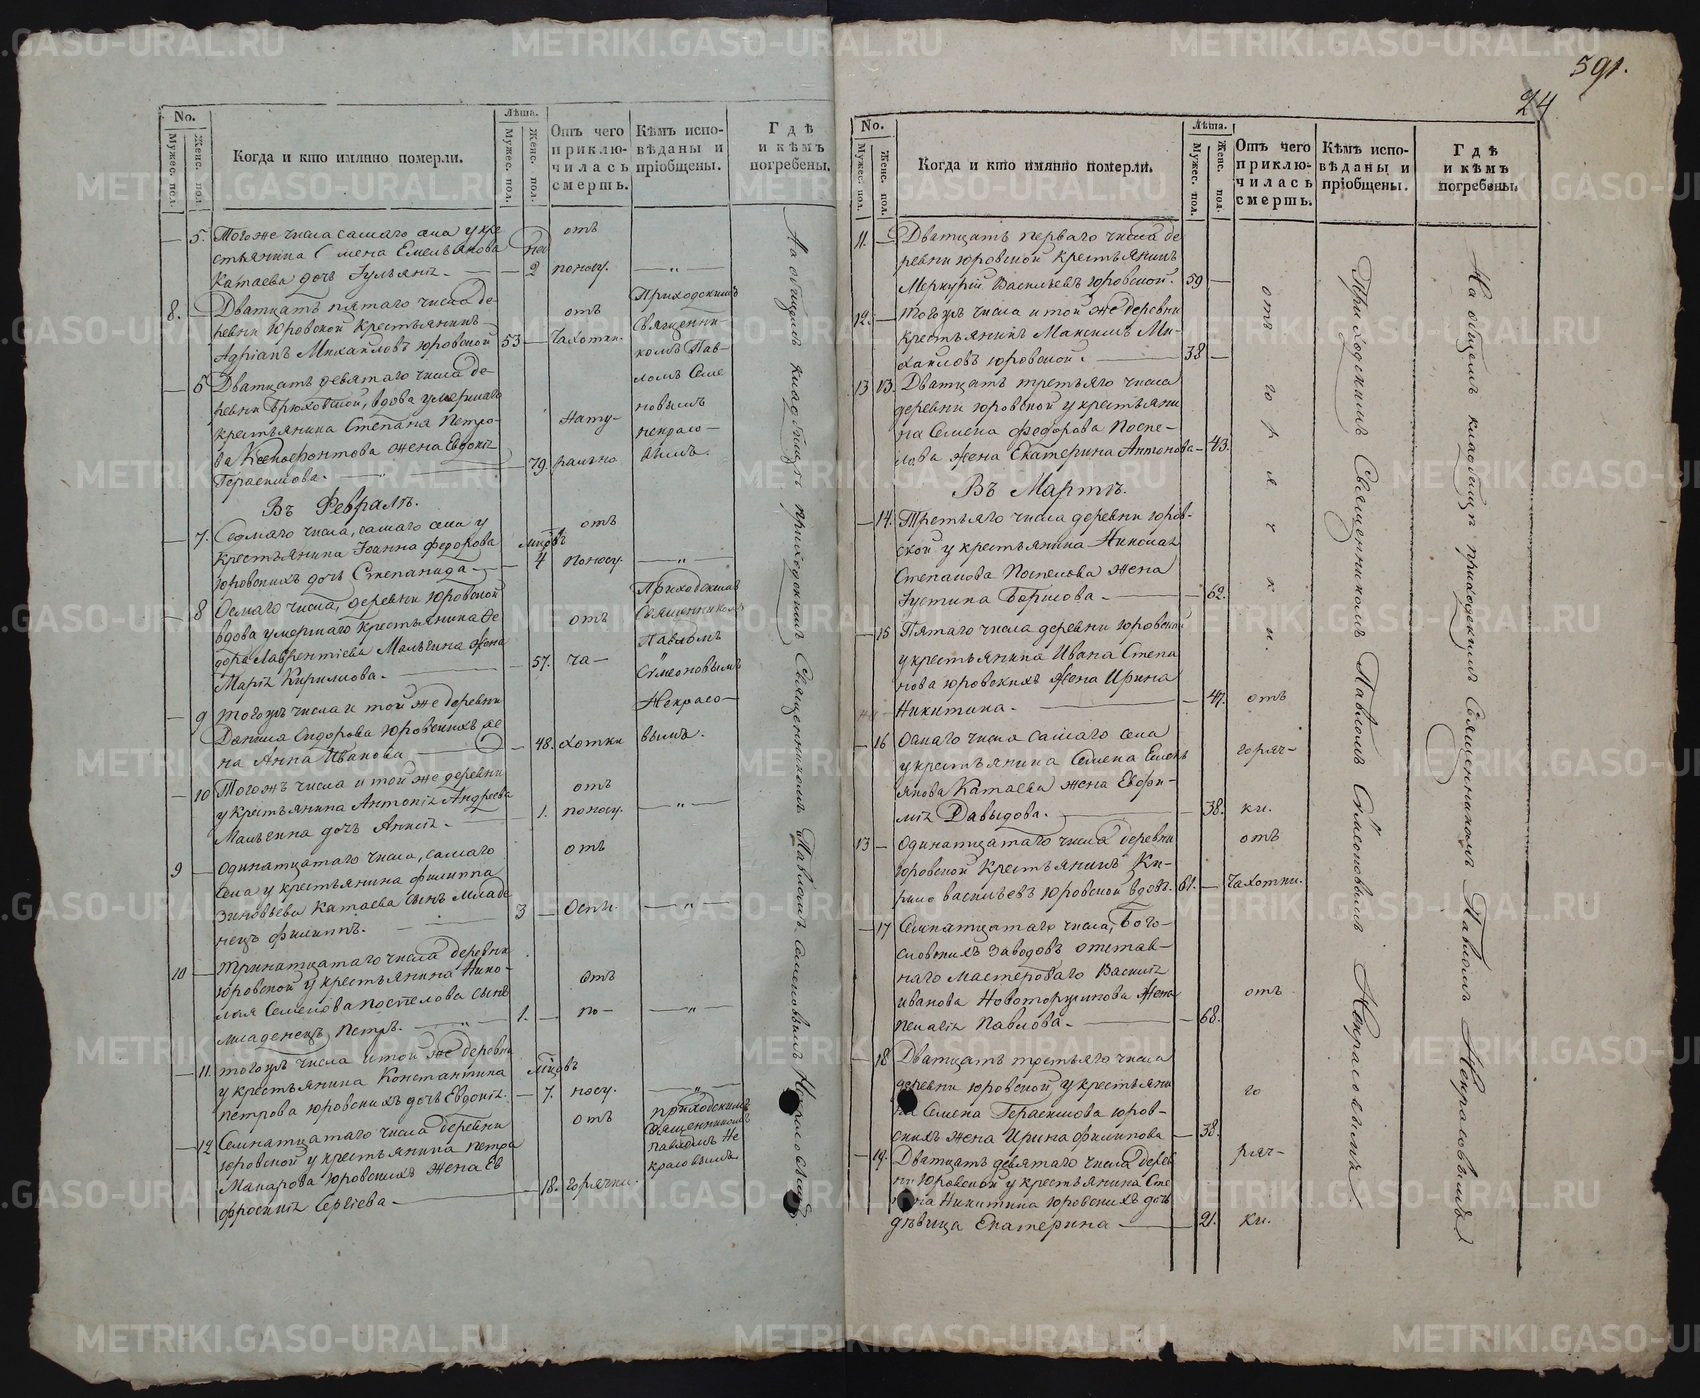 591.
24
No.
Мужес. пол.
Женс. пол.
Когда и кто имянно померли.
Лѣта.
Мужес. пол.
Женс. пол.
Отъ чего приклю-
чилась смерть.
Кѣмъ испо-
вѣданы и
пріобщены.
Гдѣ
и кѣмъ
погребены.
5. Тогоже числа самаго села у кре
стьянина Семена Емельянова
Катаева дочь Іульянія — 2 отъ поносу.
8. Дватцать пятаго числа де
ревни Юровской крестьянинъ
Адріанъ Михаиловъ Юровской 53 отъ чахотки.
Приходскимъ
священни
комъ Пав-
ломъ Симе
новымъ
Некрасо-
вымъ.
6 Дватцать девятаго числа де
ревни Брюховской, вдова умершаго
крестьянина Степана Петро-
ва Ксенофонтова жена Евдокія
Герасимова. — 79. нату-
рально
Въ Февралѣ.
7. Седмаго числа, самаго села у
крестьянина Іоанна Федорова
Юровскихъ дочь Степанида — 4 отъ поносу.
8 Осмаго числа, деревни Юровской
вдова умершаго крестьянина Фе
дора Лаврентіева Малыгина жена
Марія Кирилова. — 57. отъ ча-
Приходскимъ
священникомъ
Павломъ
Симеоновымъ
Некрасо-
вымъ.
9 Тогожъ числа и той же деревни
Данила Сидорова Юровскихъ же
на Анна Иванова — 48. хотки
10 Тогожъ числа и той же деревни
у крестьянина Антонія Андреева
Малыгина дочь Анисія. — 1. отъ поносу.
9 Одинатцатаго числа, самаго
села у крестьянина Филиппа
Зиновьева Катаева сынъ младе
нецъ Филиппъ. — 3 отъ оспы.
10 Тринатцатаго числа деревни
Юровской у крестьянина Нико-
лая Семенова Поспелова сынъ
младенецъ Петръ. — 1. отъ по-
11. Тогожъ числа и той же деревни
у крестьянина Константина
Петрова Юровскихъ дочь Евдокія. — 7. носу.
12 Семнатцатаго числа деревни
Юровской у крестьянина Петра
Макарова Юровскихъ жена Ев
фросинія Сергіева — 18. отъ горячки.
приходскимъ
священникомъ
Павломъ Не
красовымъ
На общемъ кладбищѣ приходскимъ Священникомъ Павломъ Симеоновымъ Некрасовымъ.
No.
Мужес. пол.
Женс. пол.
Когда и кто имянно померли.
Лѣта.
Мужес. пол.
Женс. пол.
Отъ чего
приклю-
чилась
смерть.
Кѣмъ испо-
вѣданы и
пріобщены.
Гдѣ
и кѣмъ
погребены.
11. Дватцать перваго числа де
ревни Юровской крестьянинъ
Меркурій Васильевъ Юровской. 59
12. Тогожъ числа и той же деревни
крестьянинъ Максимъ Ми-
хаиловъ Юровской. 38
13 13. Дватцать третьяго числа
деревни Юровской у крестьяни
на Семена Федорова Поспе-
лова жена Екатерина Антонова 43.
Въ Мартѣ.
14. Третьяго числа деревни Юров-
ской у крестьянина Николая
Степанова Поспелова жена
Іустина Борисова. — 62.
отъ горячки.
15 Пятаго числа деревни Юровской
у крестьянина Ивана Степа
нова Юровскихъ жена Ирина
Никитина. — 47. отъ
16 Осмаго числа самаго села
у крестьянина Семена Емель
янова Катаева жена Евфи-
мія Давыдова. — 38. горяч-
ки.
13 Одинатцатаго числа деревни
Юровской крестьянинъ Ки-
рило Васильевъ Юровской вдовъ. 61. отъ чахотки.
17 Семнатцатаго числа, Бого-
словскихъ заводовъ отстав-
наго мастероваго Василія
Иванова Новоторжинова жена
Пелагія Павлова. — 68. отъ
18 Дватцать третьяго числа
деревни Юровской у крестьяни
на Семена Герасимова Юров-
скихъ жена Ирина Филипова — 38. го
19. Дватцать девятаго числа дерев
ни Юровской у крестьянина Сте
Никитина Юровскихъ дочь
дѣвица Екатерина — 21. ряч-
ки.
Приходскимъ Священникомъ Павломъ Симеоновымъ Некрасовымъ.
На общемъ кладбищѣ приходскимъ Священникомъ Павломъ Некрасовымъ
METRIKI.GASO-URAL.RU